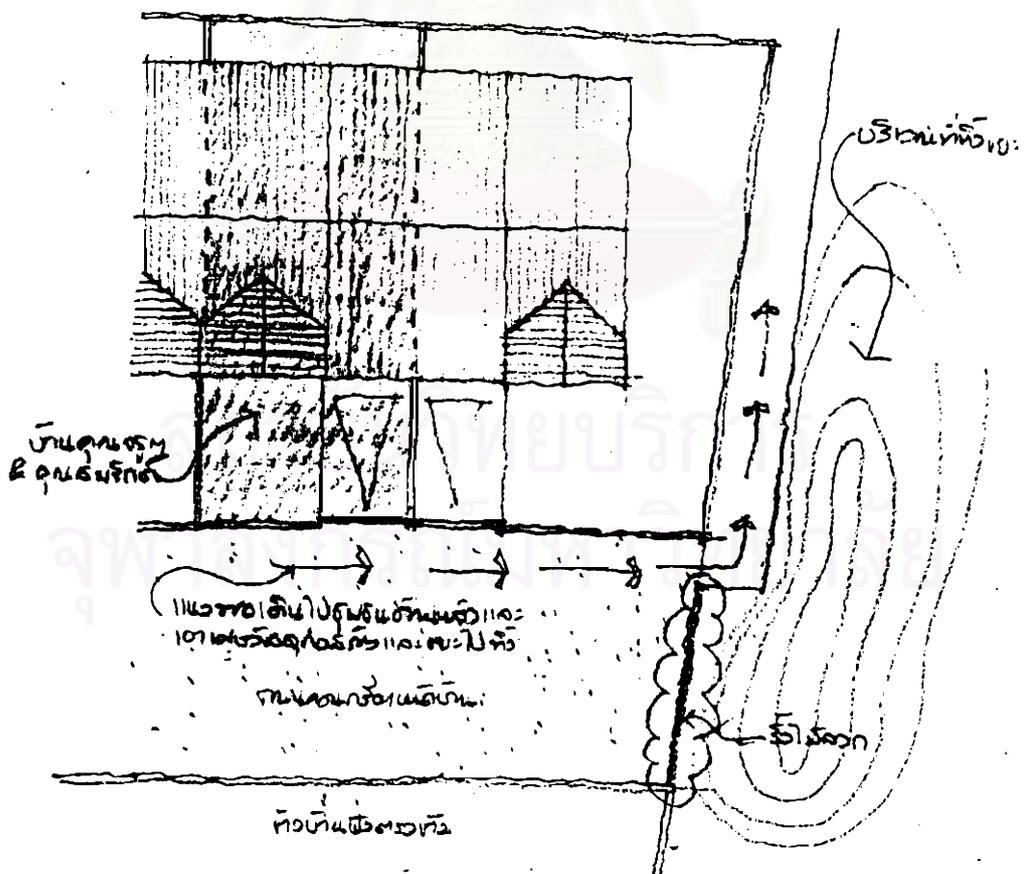 บริเวณที่ทิ้งขยะ
บ้านคุณจรูญ
& คุณสมรักษ์
แนวทางเดินไปชุมชนแออัดแล้วและ
เอาเศษวัสดุก่อสร้างและขยะไปทิ้ง
ถนนคอนกรีตหน้าบ้าน
รั้วไม้ลวก
ทิวบ้านฝั่งตรงข้าม
สถาบันวิทยบริการ
จุฬาลงกรณ์มหาวิทยาลัย